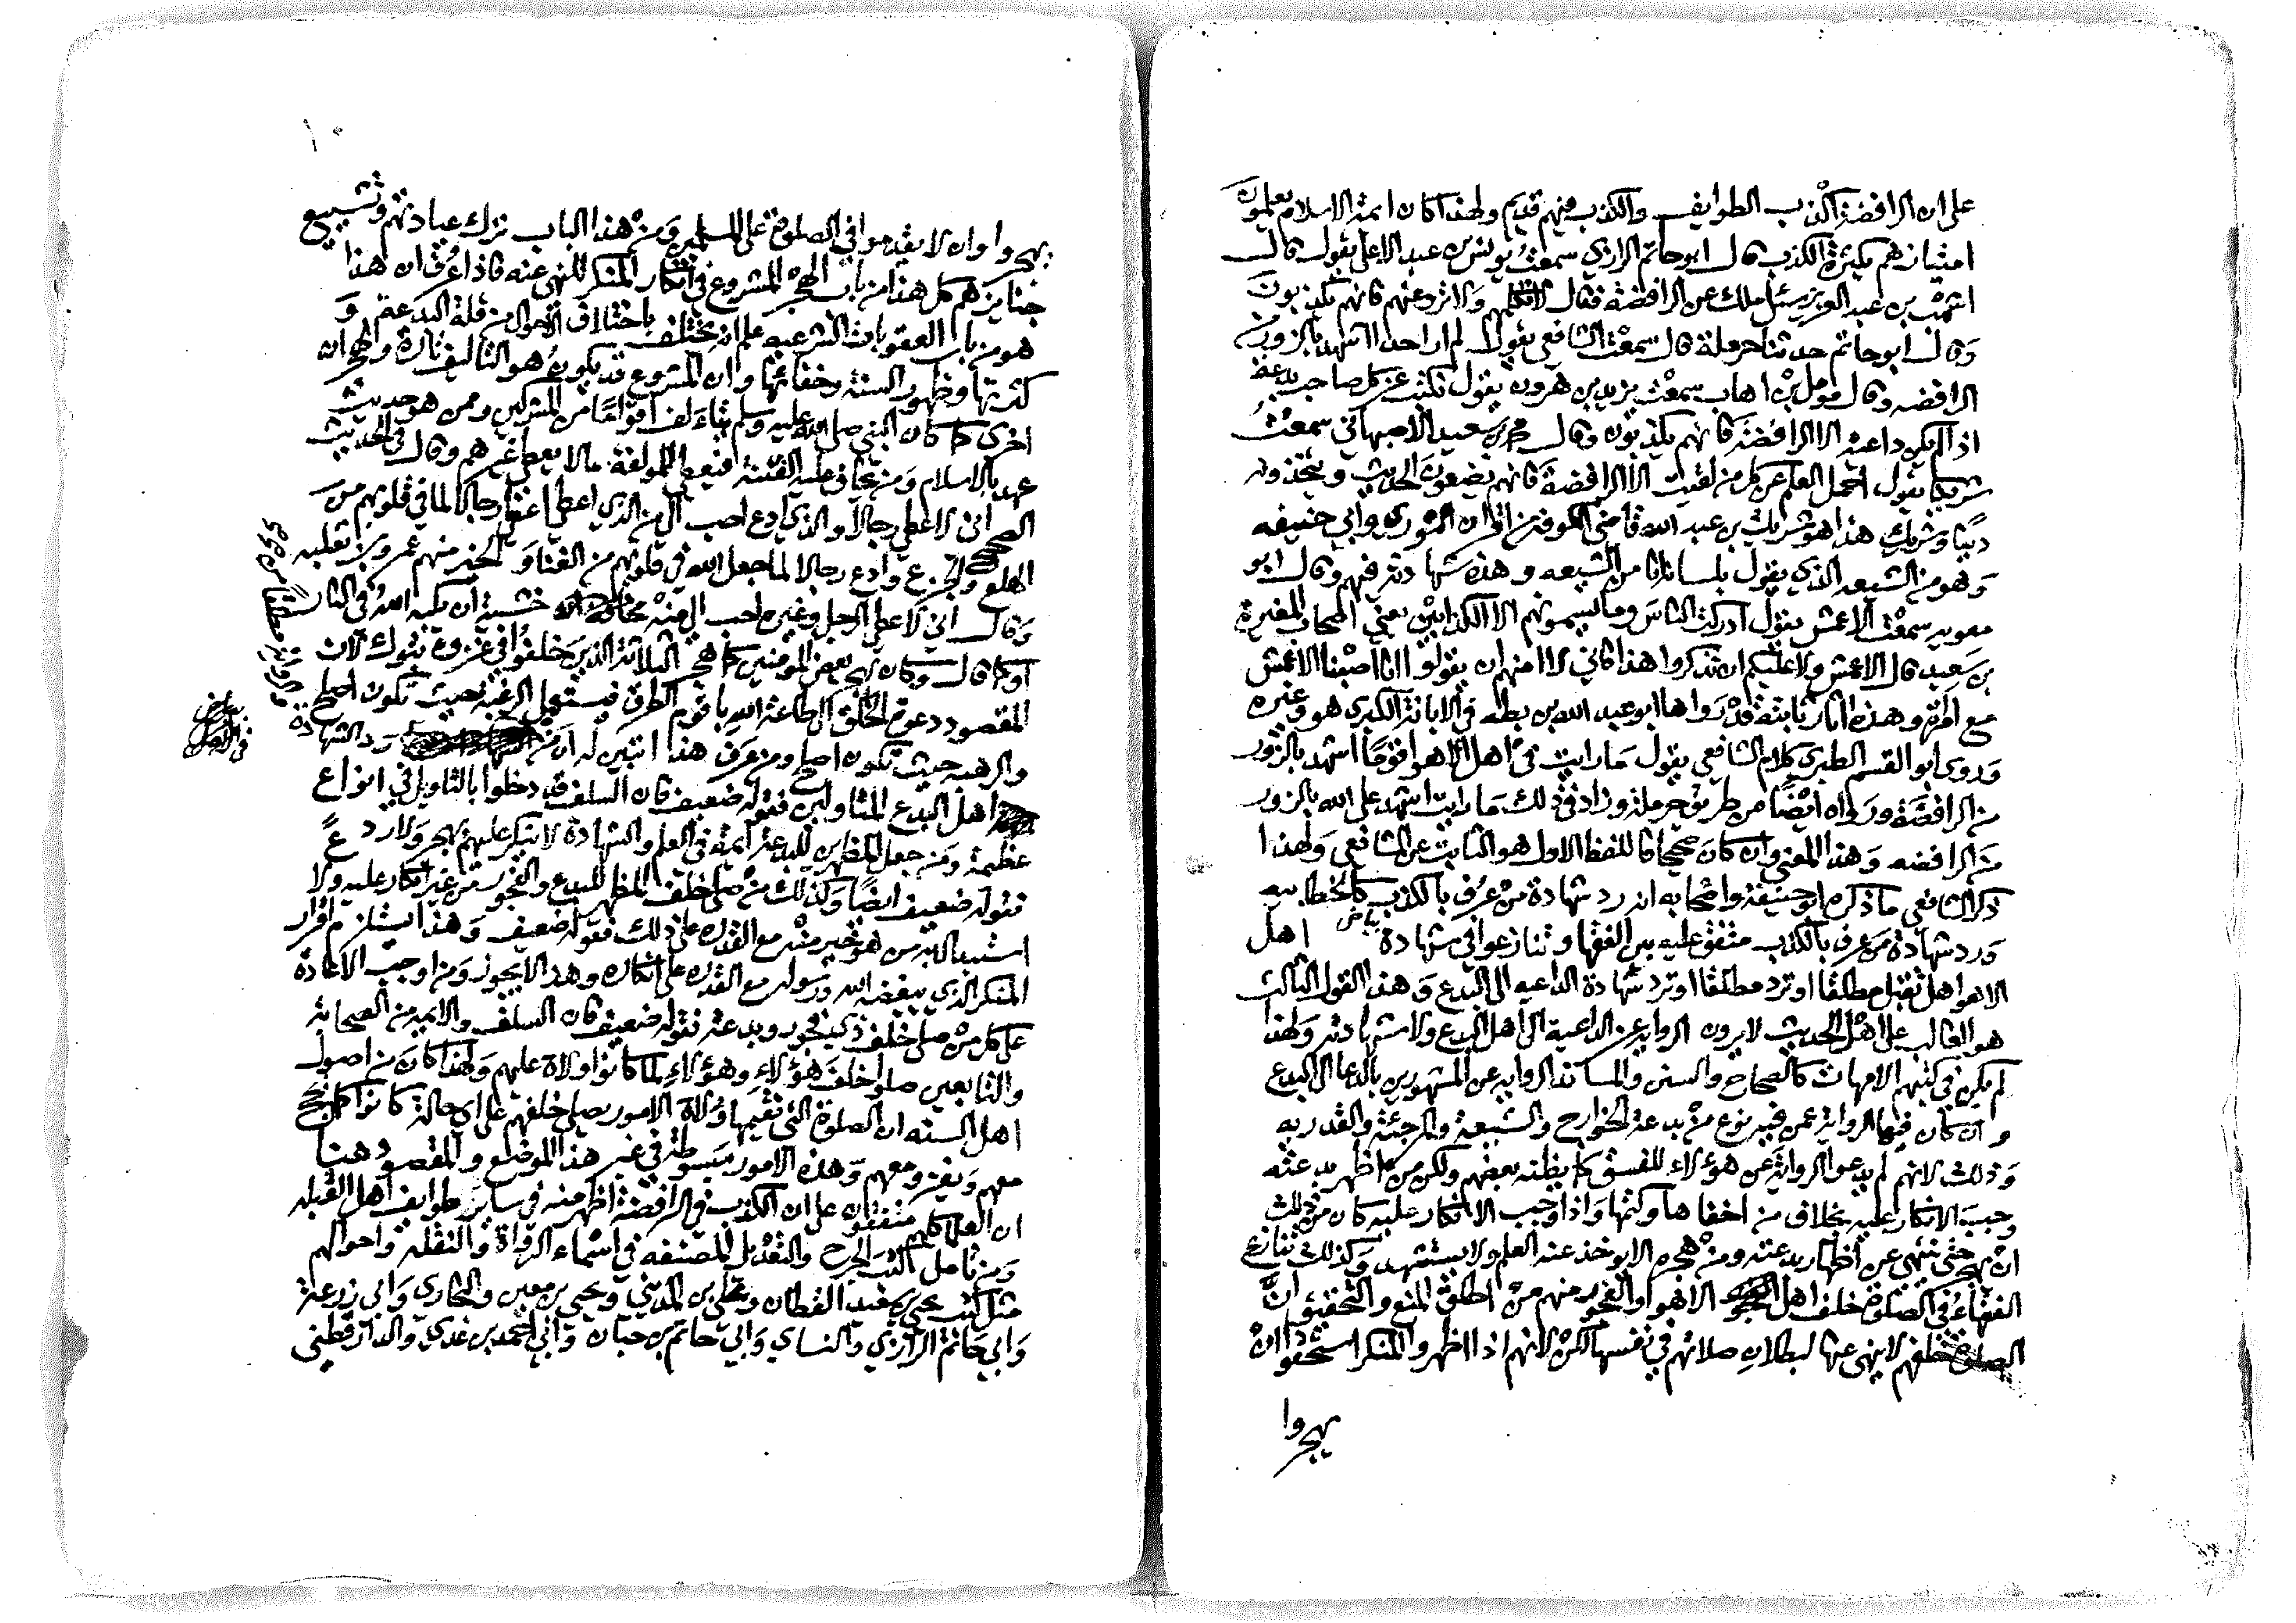 على ان الرافضة اكذب الطوايف والكذب فيهم قديم ولهذا كان ائمة الاسلام يعلمون
امتيازهم بكثرة الكذب قال ابو حاتم الرازي سمعت يونس بن عبد الاعلى يقول قال
اشهب بن عبد العزيز سئل ملك عن الرافضة فقال لا تكلمهم ولا ترو عنهم فانهم يكذبون
وقال ابو حاتم حدثنا حرملة قال سمعت الشافعي يقول لم ار احدا اشهد بالزور من
الرافضه وقال مومل بن اهاب سمعت يزيد بن هرون يقول نكتب عن كل صاحب بدعة
اذا لم يكن داعية الا الرافضة فانهم يكذبون وقال محمد بن سعيد الاصبهاني سمعت
شريكا يقول احمل العلم عن كل من لقيت الا الرافضة فانهم يضعون الحديث ويتخذونه
دينا وشريك هذا هو شريك بن عبد الله قاضي الكوفة من اقران الثوري وابي حنيفه
وهو من الشيعه الذي يقول بلسانه انا من الشيعه وهذه شهادته فيهم وقال ابو
معويه سمعت الاعمش يقول ادركت الناس وما يسمونهم الا الكذابين يعني اصحاب المغيرة
بن سعيد قال الاعمش ولا عليكم ان تذكروا هذا فاني لا امنهم ان يقولوا انا اصبنا الاعمش
مع امراة وهذه اثار ثابتة قد رواها ابو عبد الله بن بطه في الابانة الكبرى هو وغيره
وروى ابو القسم الطبري كلام الشافعي يقول ما رايت في اهل الاهوا قوما اشهد بالزور
من الرافضة ورواه ايضا من طريق حرملة وزاد في ذلك ما رايت اشهد على الله بالزور
من الرافضه وهذا المعنى وان كان صحيحا فاللفظ الاول هو الثابت عن الشافعي ولهذا
ذكر الشافعي ما ذكره ابو حنيفة واصحابه انه رد شهادة من عرف بالكذب كالخطابيه
ورد شهادة من عرف بالكذب متفق عليه بين الفقها وتنازعوا في شهادة بياض اهل
الاهوا هل تقبل مطلقا او ترد مطلقا او ترد شهادة الداعيه الى البدع وهذا القول الثالث
هو الغالب على اهل الحديث لا يرون الرواية عن الداعية الى اهل البدع ولا شهادته ولهذا
لم يكن في كتبهم الامهات كالصحاح والسنن والمساند الروايه عن المشهورين بالدعا الى البدع
وان كان فيها الرواية عمن فيه نوع من بدعة كالخوارج والشيعة والمرجئة والقدريه
وذلك لانهم لم يدعوا الرواية عن هؤلاء للفسق كما يظنه بعضهم ولكن من اظهر بدعته
وجب الانكار عليه بخلاف من اخفاها وكتمها واذا وجب الانكار عليه كان من ذلك
ان يهجر حتى ينتهي عن اظهار بدعته ومن هجره الا يوخذ عنه العلم ولا يستشهد وكذلك تنازع
الفقهاء في الصلوة خلف اهل الاهوا والفجور منهم من اطلق المنع والتحقيق ان
الصلوة خلفهم لا ينهى عنها لبطلان صلاتهم في نفسها لكن لانهم اذا اظهروا المنكر استحقوا ان
يهجروا
١٠
يهجروا وان لا يقدموا في الصلوة على المسلمين ومن هذا الباب ترك عيادتهم وتشييع
جنايزهم كل هذا من باب الهجر المشروع في انكار المنكر للنهي عنه فاذا عرف ان هذا
هو من باب العقوبات الشرعيه علم انه يختلف باختلاف الاحوال من قلة البدعة و
كثرتها وظهور السنة وخفائها وان المشروع قد يكون هو التاليف تارة والهجران
اخرى كما كان النبي صلى الله عليه وسلم يتاءلف اقواما من المشركين وممن هو حديث
عهد بالاسلام ومن يخاف عليه الفتنة فيعطي المولفة ما لا يعطي غيرهم وقال في الحديث
الصحيح اني لاعطي رجالا والذي ادع احب الي من الذي اعطي اعطي رجالا لما في قلوبهم من
الهلع والجزع وادع رجالا لما جعل الله في قلوبهم من الغنا والخير منهم عمرو بن تغلبه
وقال اني لاعطي الرجل وغيره احب الي منه خشية ان يكبه الله في النار
او كما قال وكان يهجر بعض المومنين كما هجر الثلاثة الذين خلفوا في غزوة تبوك لان
المقصود دعوة الخلق الى طاعة الله باقوم الطرق فيستعمل الرغبة حيث تكون اصلح
والرهبة حيث تكون اصلح ومن عرف هذا تبين له ان من رد الشهادة
اهل البدع المتاولين فقوله ضعيف فان السلف قد دخلوا بالتاويل في انواع
عظيمة ومن جعل المظهرين للبدعة ائمة في العلم والشهادة لا ينكر عليهم بهجر ولا ردع
فقوله ضعيف ايضا وكذلك من صلى خلف المظهر للبدع والفجور من غير انكار عليه ولا
استبدال به من هو خير منه مع القدرة على ذلك فقوله ضعيف وهذا استلزم اقرار
المنكر الذي يبغضه الله ورسوله مع القدرة على انكاره وهذا لا يجوز ومن اوجب الاعادة
على كل من صلى خلف ذي فجور وبدعة فقوله ضعيف فان السلف والايمه من الصحابة
والتابعين صلوا خلف هؤلاء وهؤلاء لما كانوا ولاة عليهم ولهذا كان من اصول
اهل السنه ان الصلوة التي تقيمها ولاة الامور يصلى خلفهم على اي حالة كانوا كما يحج
معهم ويغزو معهم وهذه الامور مبسوطة في غير هذا الموضع والمقصود هنا
ان العلما كلهم متفقون على ان الكذب في الرافضة اظهر منه في ساير طوايف اهل القبله
ومن تامل كتب الجرح والتعديل المصنفه في اسماء الرواة والنقله واحوالهم
مثل كتب يحيى بن سعيد القطان وعلي بن المديني ويحيى بن معين والبخاري وابي زرعة
وابي حاتم الرازي والنساي وابي حاتم بن حبان وابي احمد بن عدي والدارقطني
بياض
في الاصل